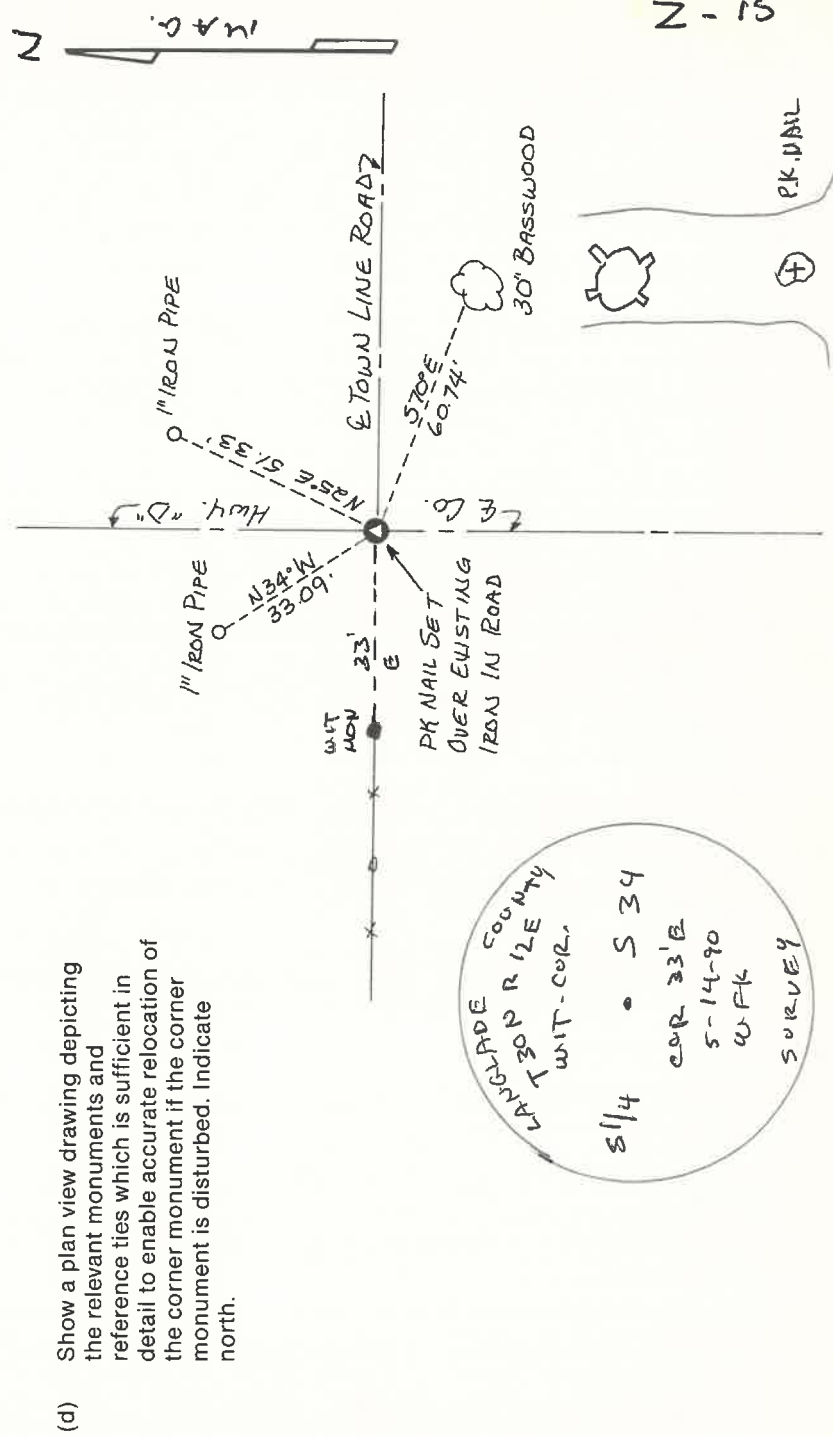 (d) Show a plan view drawing depicting
the relevant monuments and
reference ties which is sufficient in
detail to enable accurate relocation of
the corner monument if the corner
monument is disturbed. Indicate
north.
N
MAG.
Z-15
1" IRON PIPE
N34°W
33.09'
1" IRON PIPE
N25°E 51.33'
HWY. "D"
℄ CO.
℄ TOWN LINE ROAD
S70°E
60.74'
30" BASSWOOD
WIT
MON
33'
E
PK NAIL SET
OVER EXISTING
IRON IN ROAD
P.K. NAIL
LANGLADE COUNTY
T30N R12E
WIT-COR.
S1/4 • S 34
COR 33'E
5-14-90
WFK
SURVEY